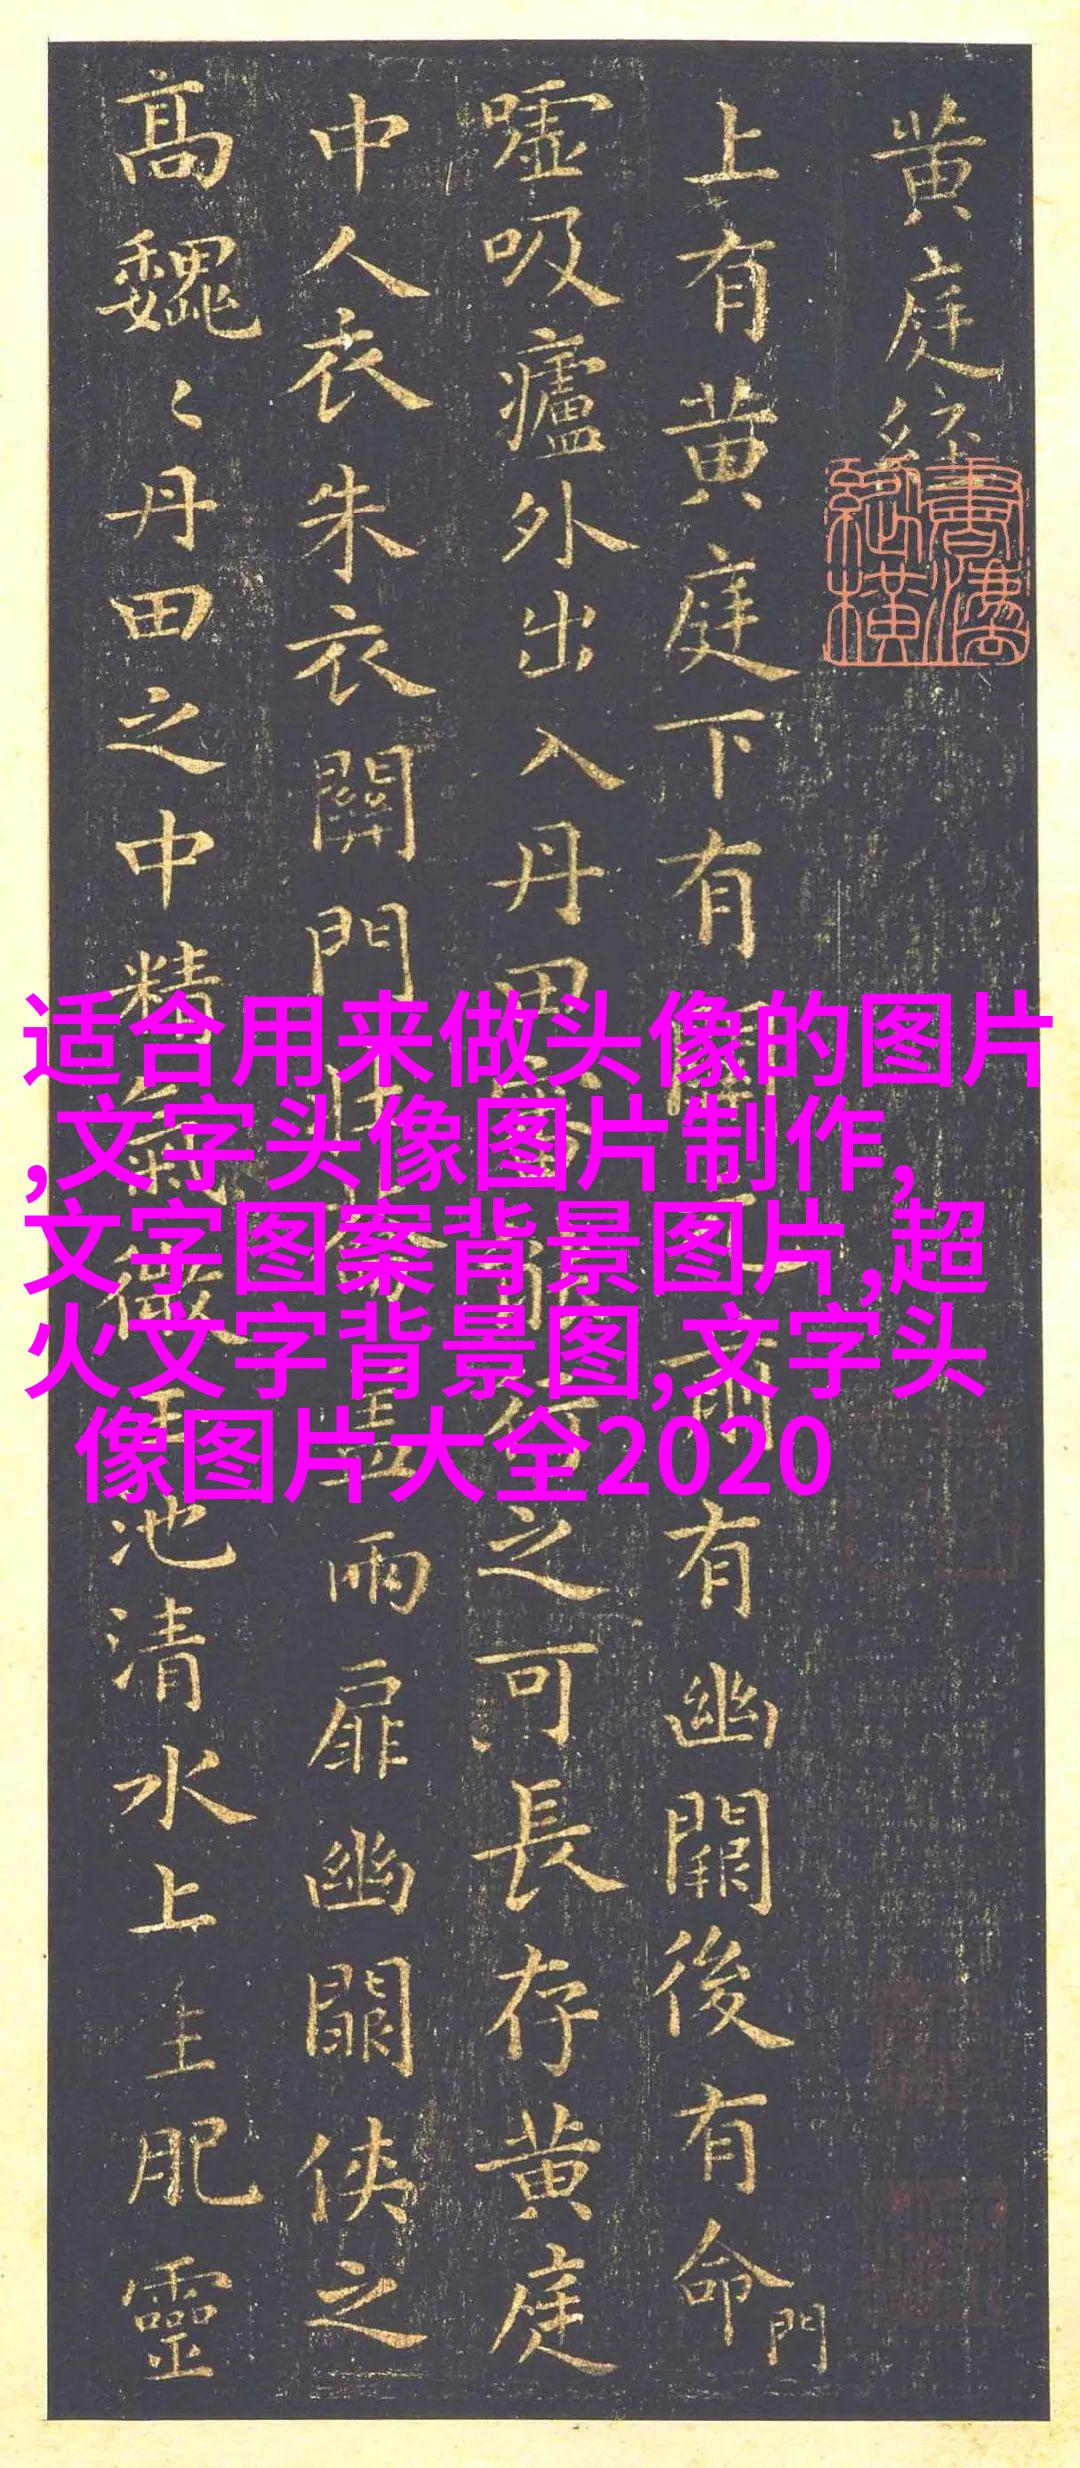 黄庭經
上有黄庭下有關有幽闕後有命門
嘘吸廬外出入丹田行之可長存黄庭
中人衣朱衣關門蓋兩扉幽闕俠之
高巍〻丹田之中精氣微玉池清水上生肥靈
适合用来做头像的图片
,文字头像图片制作,
文字图案背景图片,超
火文字背景图,文字头
像图片大全2020